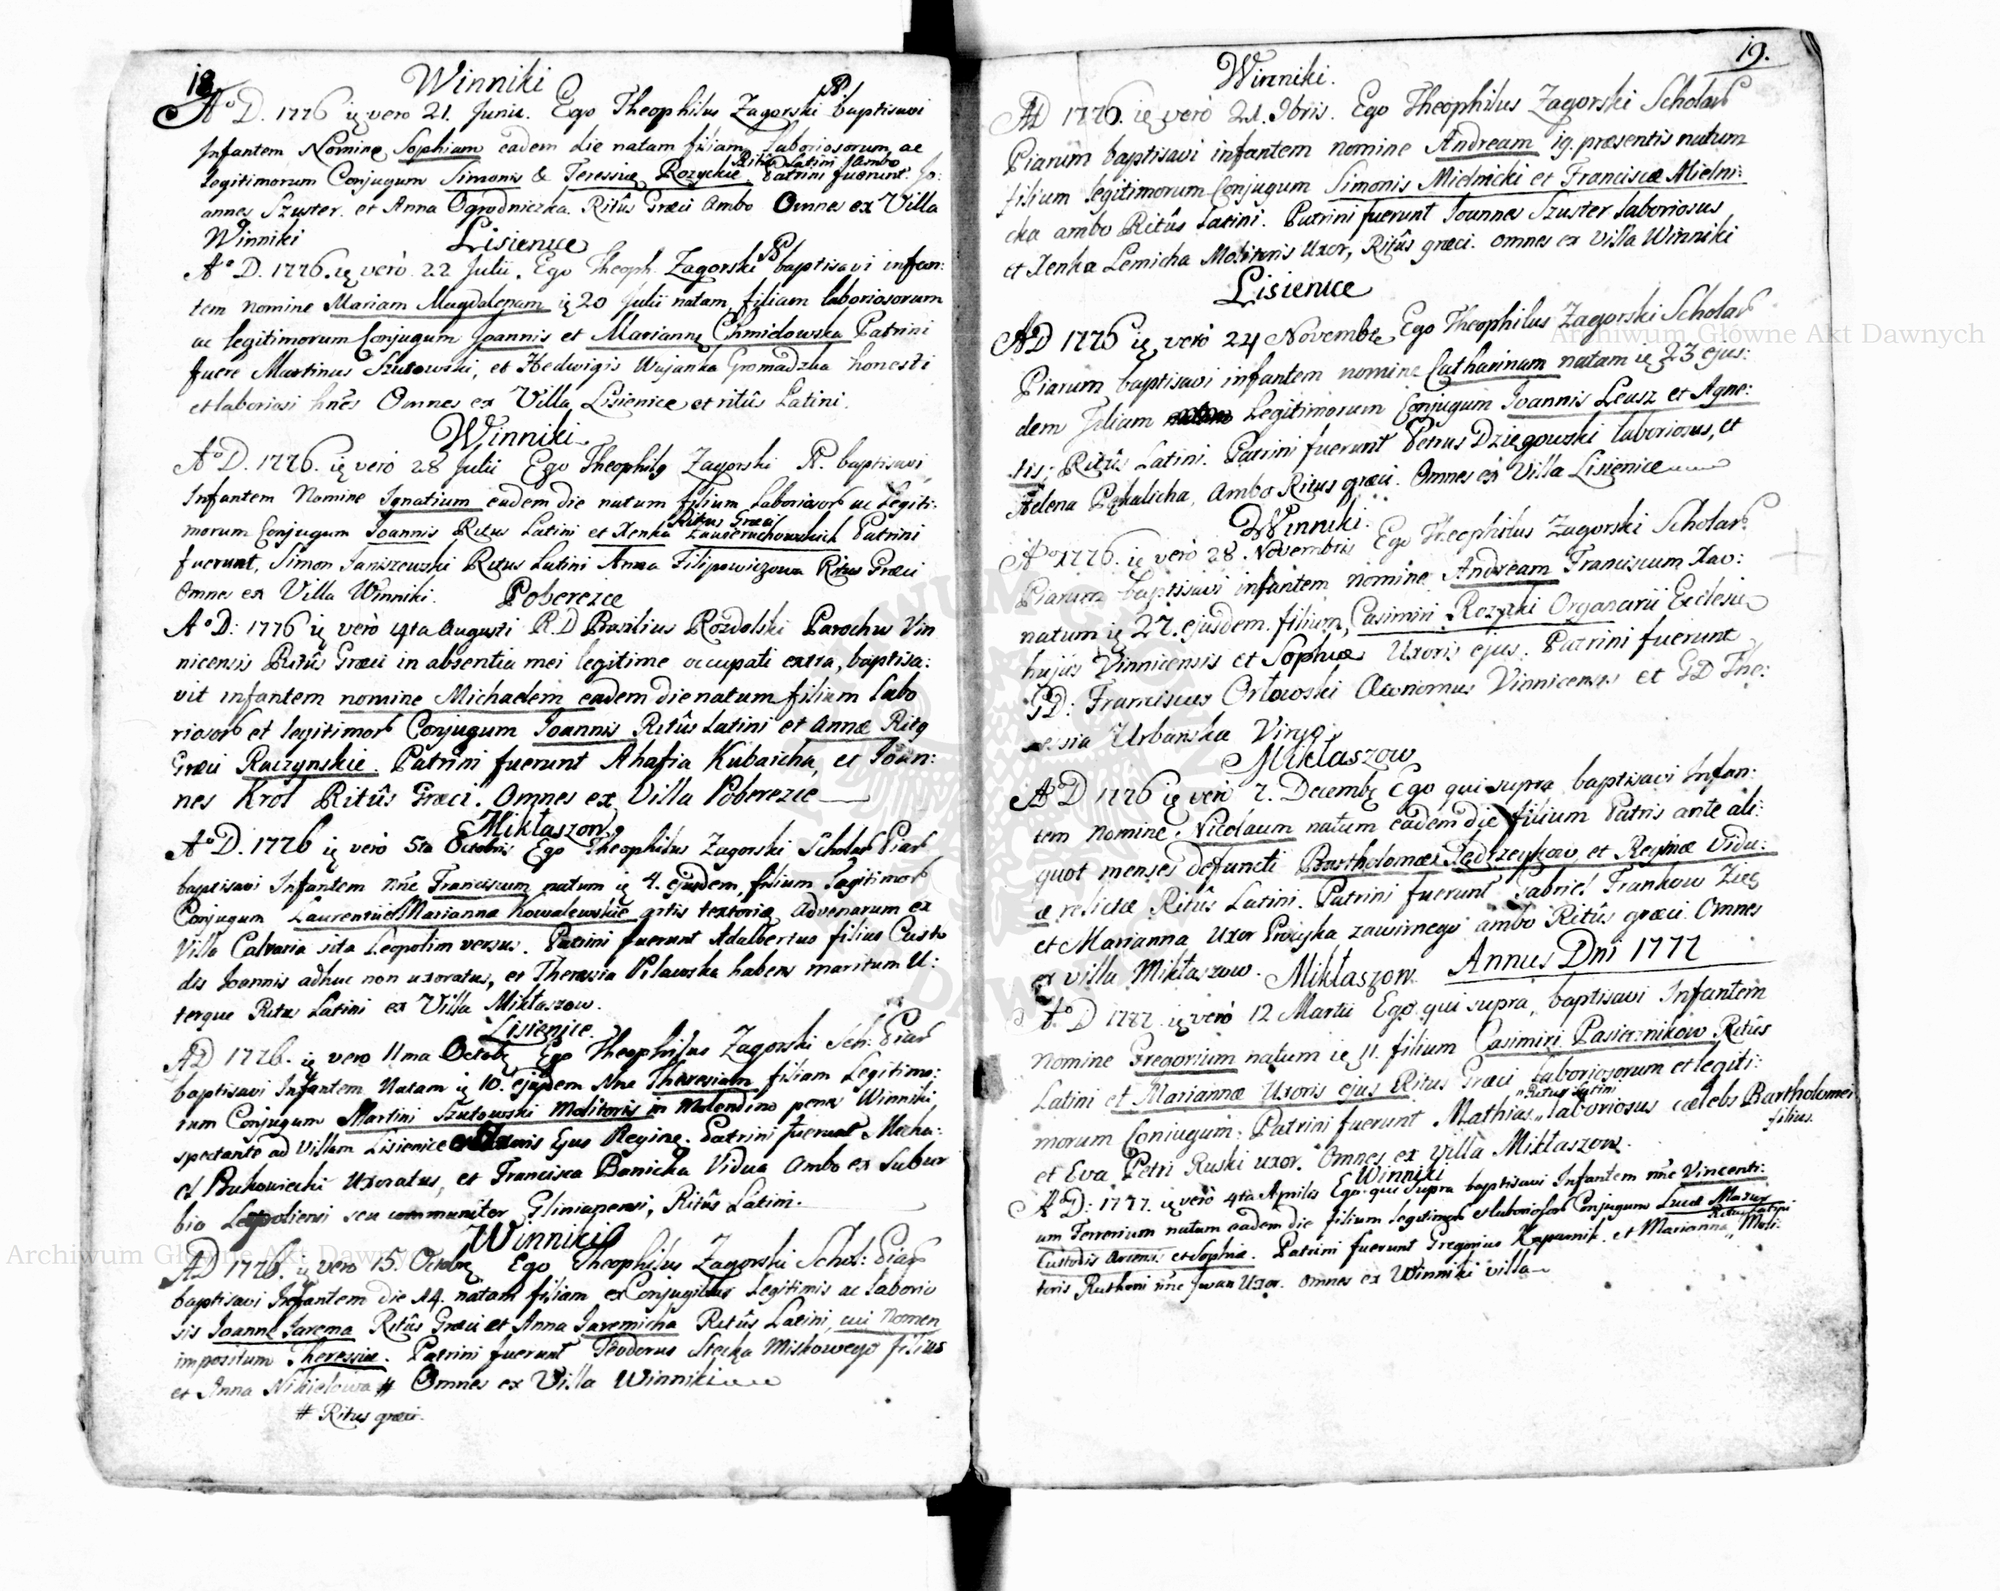 18.
Winniki
Aº D. 1776 ię vero 21. Junii. Ego Theophilus Zagorski SP. baptisavi
Infantem Nomine Sophiam eadem die natam filiam Laboriosorum ac
Legitimorum Conjugum Simonis & Teressiæ Rozyckie. Ritûs Latini Ambo Patrini fuerunt Jo:
annes Szuster. et Anna Ogrodniczka. Ritûs Græci Ambo Omnes ex Villa
Winniki
Lisienice
Aº D. 1776. ię verò 22 Julii. Ego Theoph. Zagorski SP baptisavi infan:
tem nomine Mariam Magdalenam ię 20 Julii natam, filiam laboriosorum
ac legitimorum Conjugum Joannis et Mariannę Chmielowska Patrini
fuere Martinus Szutowski, et Hedwigis Wujanka Gromadzka honesti
et laboriosi hnẽs Omnes ex Villa Lisienice et ritûs Latini.
Winniki
Aº D. 1776. ię verò 28 Julii Ego Theophilg Zagorski P. baptisavi
Infantem Nomine Ignatium eadem die natum filium Laboriosor ac Legiti:
morum Conjugum Joannis Ritus Latini et Xenka Ritus Græci Patrini
fuerunt, Simon Janiszewski Ritus Latini Anna Filipowiczowa Ritus Græci
Omnes ex Villa Winniki.
Poberezce
Aº D: 1776 ię verò 4ta Augusti R.D Basilius Rozdolski Parochus Vin
nicensis Ritûs Græci in absentia mei legitime occupati extra, baptisa:
vit infantem nomine Michaelem eadem die natum filium Labo
riosor et legitimor Conjugum Joannis Ritûs Latini et Annæ Ritg
Græci Raczynskie. Patrini fuerunt Ahafia Kubaicha, et Joan:
nes Krol Ritûs Græci. Omnes ex Villa Poberezce
Miktaszow
Aº D. 1776 ię verò 5ta Octobris Ego Theophilus Zagorski Scholar Piar
baptisavi Infantem nñe Franciscum natum ię 4. ejusdem, filium Legitimor
Conjugum Laurentii et Marianna Kowalewskie artis textoriæ Advenarum ex
Villa Calvaria sita Leopolim versus. Patrini fuerunt Adalbertus filius Custo
dis Joannis adhuc non uxoratus, et Theressia Pilawska habens maritum U:
terque Ritus Latini ex Villa Miktaszow.
Lisienice
AD 1776. ię vero 11ma Octobr Ego Theophilus Zagorski Sch: Piar
baptisavi Infantem Natam ię 10. ejusdem Nne Theresiam filiam Legitimo:
rum Conjugum Martini Szutowski Molitoris in Molendino penes Winniki
spectante ad Villam Lisienice Uxoris Ejus Reginę. Patrini fuerunt Micha:
el Bukowiecki Uxoratus, et Francisca Banicka Vidua Ambo ex Subur
bio Leopoliensi seu communiter Glinianensi, Ritûs Latini.
Winniki
AD 1776. ię vero 15. Octobr Ego Theophilus Zagorski Schol: Piar
baptisavi Infantem die 14. natam filiam ex Conjugibus Legitimis ac Laborio
sis Joanne Jarema Ritûs Græci et Anna Jaremicha Ritûs Latini, cui Nomen
impositum Theressiæ. Patrini fuerunt Teodorus Stecka Miskowego filius
et Anna Nikielowa # Omnes ex Villa Winniki
# Ritus græci.
19.
Winniki.
AD 1776. ię verò 21. 9bris. Ego Theophilus Zagorski Scholar
Piarum baptisavi infantem nomine Andream 19. præsentis natum
filium legitimorum Conjugum Simonis Mielnicki et Franciscæ Mielni:
cka ambo Ritûs Latini. Patrini fuerunt Joannes Szuster laboriosus
et Xenka Lemicha Molitoris Uxor, Ritûs græci. omnes ex Villa Winniki
Lisienice
AD 1776 ię verò 24 Novembr Ego Theophilus Zagorski Scholar
Piarum baptisavi infantem nomine Catharinam natam ię 23 ejus:
dem filiam Legitimorum Conjugum Joannis Leusz et Agne:
tis; Ritûs Latini. Patrini fuerunt Petrus Dziegowski laboriosus, et
Helena Pękalicha, Ambo Ritus græci. Omnes ex Villa Lisienice
Winniki.
Aº 1776. ię verò 28. Novembris Ego Theophilus Zagorski Scholar
Piarum baptisavi infantem nomine Andream Franciscum Xav:
natum ię 27. ejusdem. filium, Casimiri Rozycki Organarii Ecclesiæ
hujus Vinnicensis et Sophiæ Uxoris ejus. Patrini fuerunt
GD: Franciscus Orłowski Œconomus Vinnicensis et GD The:
ressia Urbanska Virgo.
Miktaszow
Aº D 1776 ię verò 7. Decembr Ego qui supra baptisavi Infan:
tem Nomine Nicolaum natum eadem die filium Patris ante ali:
quot menses defuncti Bartholomæi Jędrzeykow, et Reginæ Vidu:
æ relictæ Ritûs Latini. Patrini fuerunt Gabriel Frankow Zięć
et Marianna Uxor Procyka zawirnego ambo Ritûs græci. Omnes
ex villa Miktaszow.
Annus Dni 1777
Miktaszow
Aº D 1777 ię verò 12 Martii Ego qui supra, baptisavi Infantem
Nomine Gregorium natum ię 11. filium Casimiri Pasiecznikow Ritûs
Latini et Mariannæ Uxoris ejus Ritus Græci Laboriosorum et legiti:
morum Coniugum: Patrini fuerunt Mathias "Ritus Latini" Laboriosus cælebs Bartholomei
filius.
et Eva Petri Ruski uxor. Omnes ex Villa Miktaszow.
Winniki
Aº D: 1777. ię verò 4ta Aprilis Ego qui supra baptisavi Infantem nñe Vincenti:
um Ferrerium natum eadem die filium legitimor et laboriosor Conjugum Lucæ Mazur
Custodis et Sophiæ. Patrini fuerunt Gregorius Kaparnik. et Marianna Ritus Latini Moli:
toris Rutheni nñe Jwan Uxor. omnes ex Winniki villa
Archiwum Główne Akt Dawnych
Archiwum Główne Akt Dawnych